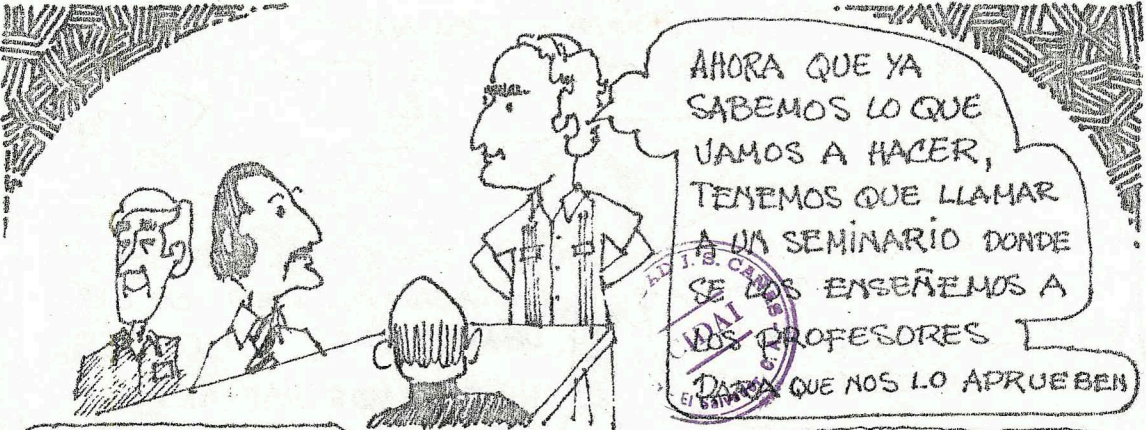 AHORA QUE YA
SABEMOS LO QUE
VAMOS A HACER,
TENEMOS QUE LLAMAR
A UN SEMINARIO DONDE
SE LOS ENSEÑEMOS A
LOS PROFESORES
PARA QUE NOS LO APRUEBEN
J. S. CAÑAS
CIDAI
El Salvador, C.